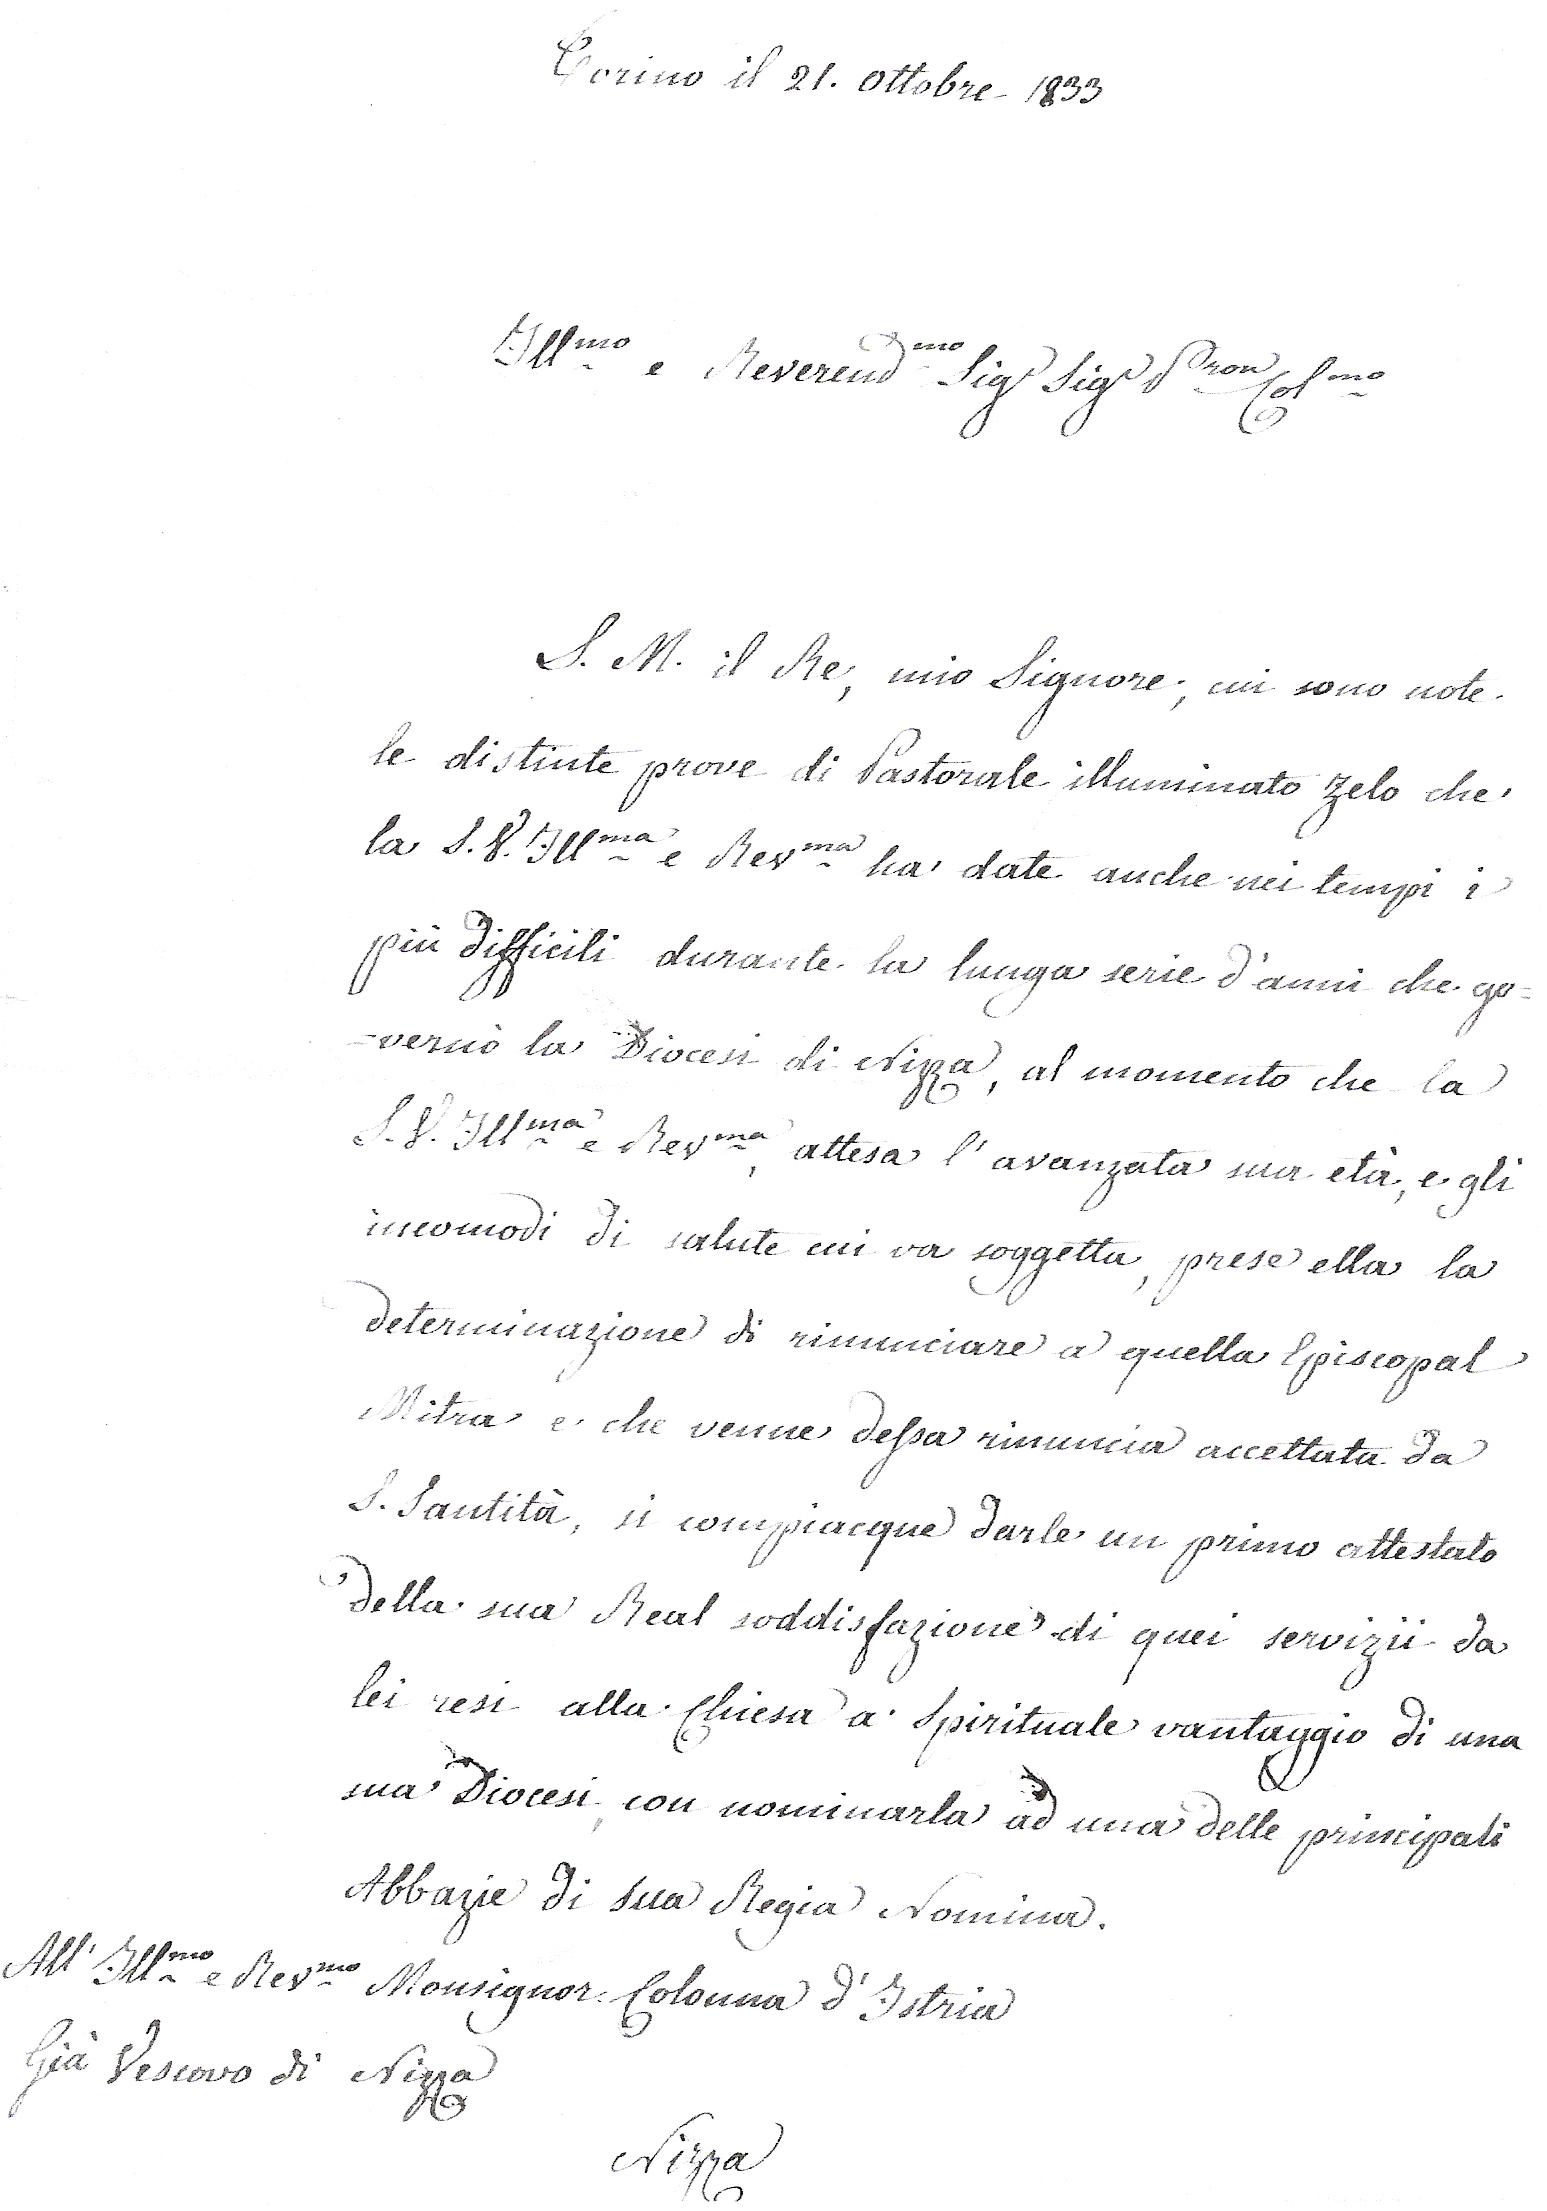 Torino il 21. Ottobre 1833
Ill.mo e Reverend.mo Sig.r Sig.r P.ron Col.mo
S. M. il Re, mio Signore, cui sono note
le distinte prove di Pastorale illuminato Zelo che
la S. V. Ill.ma e Rev.ma ha date anche nei tempi i
più difficili durante la lunga serie d'anni che go=
=vernò la Diocesi di Nizza, al momento che la
S. V. Ill.ma e Rev.ma, attesa l'avanzata sua età, e gli
incomodi di salute cui va soggetta, prese ella la
determinazione di rinunciare a quella Episcopal
Mitra e che venne dessa rinuncia accettata da
S. Santità, si compiacque darle un primo attestato
della sua Real soddisfazione di quei servizii da
lei resi alla Chiesa a Spirituale vantaggio di una
sua Diocesi, con nominarla ad una delle principali
Abbazie di Sua Regia Nomina.
All' Ill.mo e Rev.mo Monsignor Colonna d'Istria
Già Vescovo di Nizza
Nizza